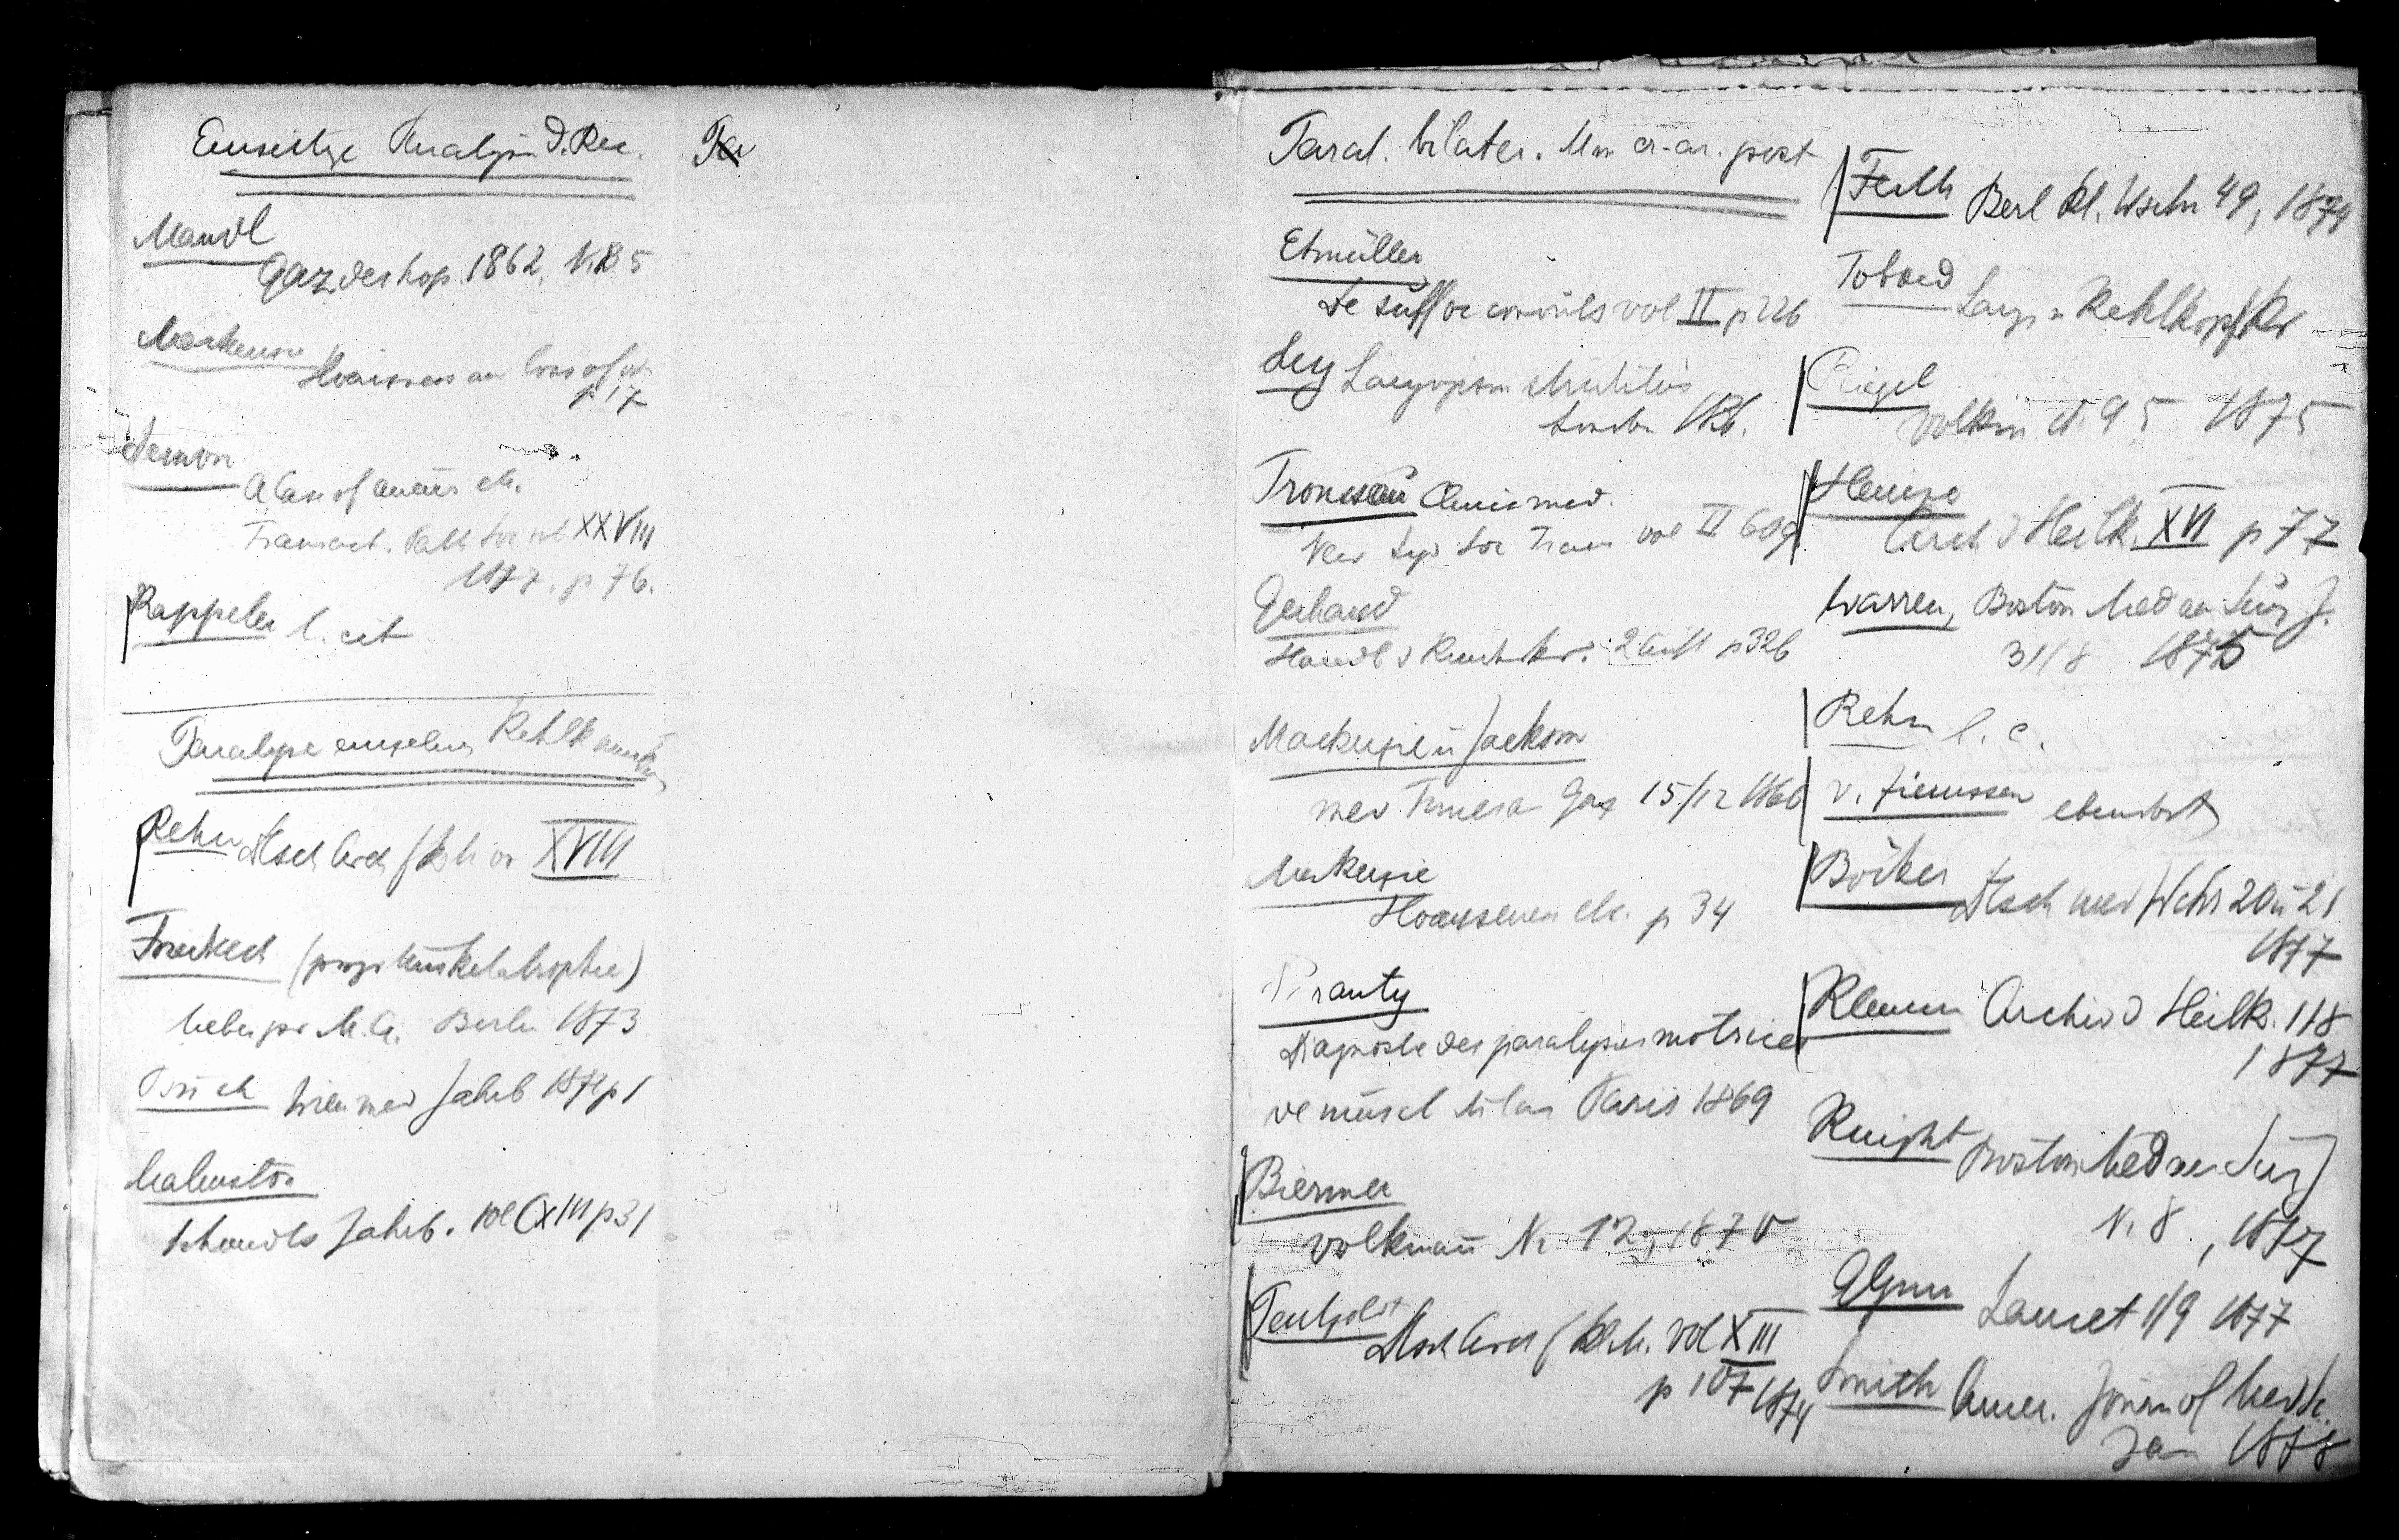 Einseitige Paralysen d. Rec.
Mandl
Gaz des hop. 1862, N. 35
Mackenzie
Hoarseness an loss of
p 17
Semon
A Case of etc.
Transact. Path Soc vol XXVIII
1877. p 76.
Kappeler l. cit
Paralyse einzelner Kehlk
Rehn Dtsch Arch f kl XVIII
(progr Muskelatrophie)
Berlin 1873
Wien med Jahrb p 1
Malmsten
Schmidts Jahrb. vol CXIII p 31
Paral. bilater. Mm cr-ar. post
Etmüller
De suffoc convuls vol II p 226
Ley Laryngism stridulus
London
Trousseau Clinic med.
New Syd Soc Trans vol II 609
Gerhard
Handb d Kinderkr. 2 Aufl p 326
Mackenzie u Jackson
med Times a Gaz 15/12 1866
Mackenzie
Hoarseness etc. p 34
Diagnostic des paralysies motrices
de muscl du lar Paris 1869
Biermer
Volkmann Nr
Penzoldt
Dtsch Arch f kl M. vol XIII
p 107 1874
Feith Berl kl. Wschr 49, 1874
Tobold
Laryn u Kehlkopfkr
Riegel
Volkm N. 95 1875
Heinze
Arch d Heilk. XVI p 77
Warren, Boston Med an Surg J.
31/8
Rehn l. c.
v. Ziemssen ebendort
Böcker
Dtsch med Wchr 20 u 21
1877
Klemm Archiv d Heilk.
1877
Knight Boston Med an Surg J
N. 8, 1877
Glynn Lancet 1/9 1877
Smith Amer. Journ of Med Sc.
Jan 1878